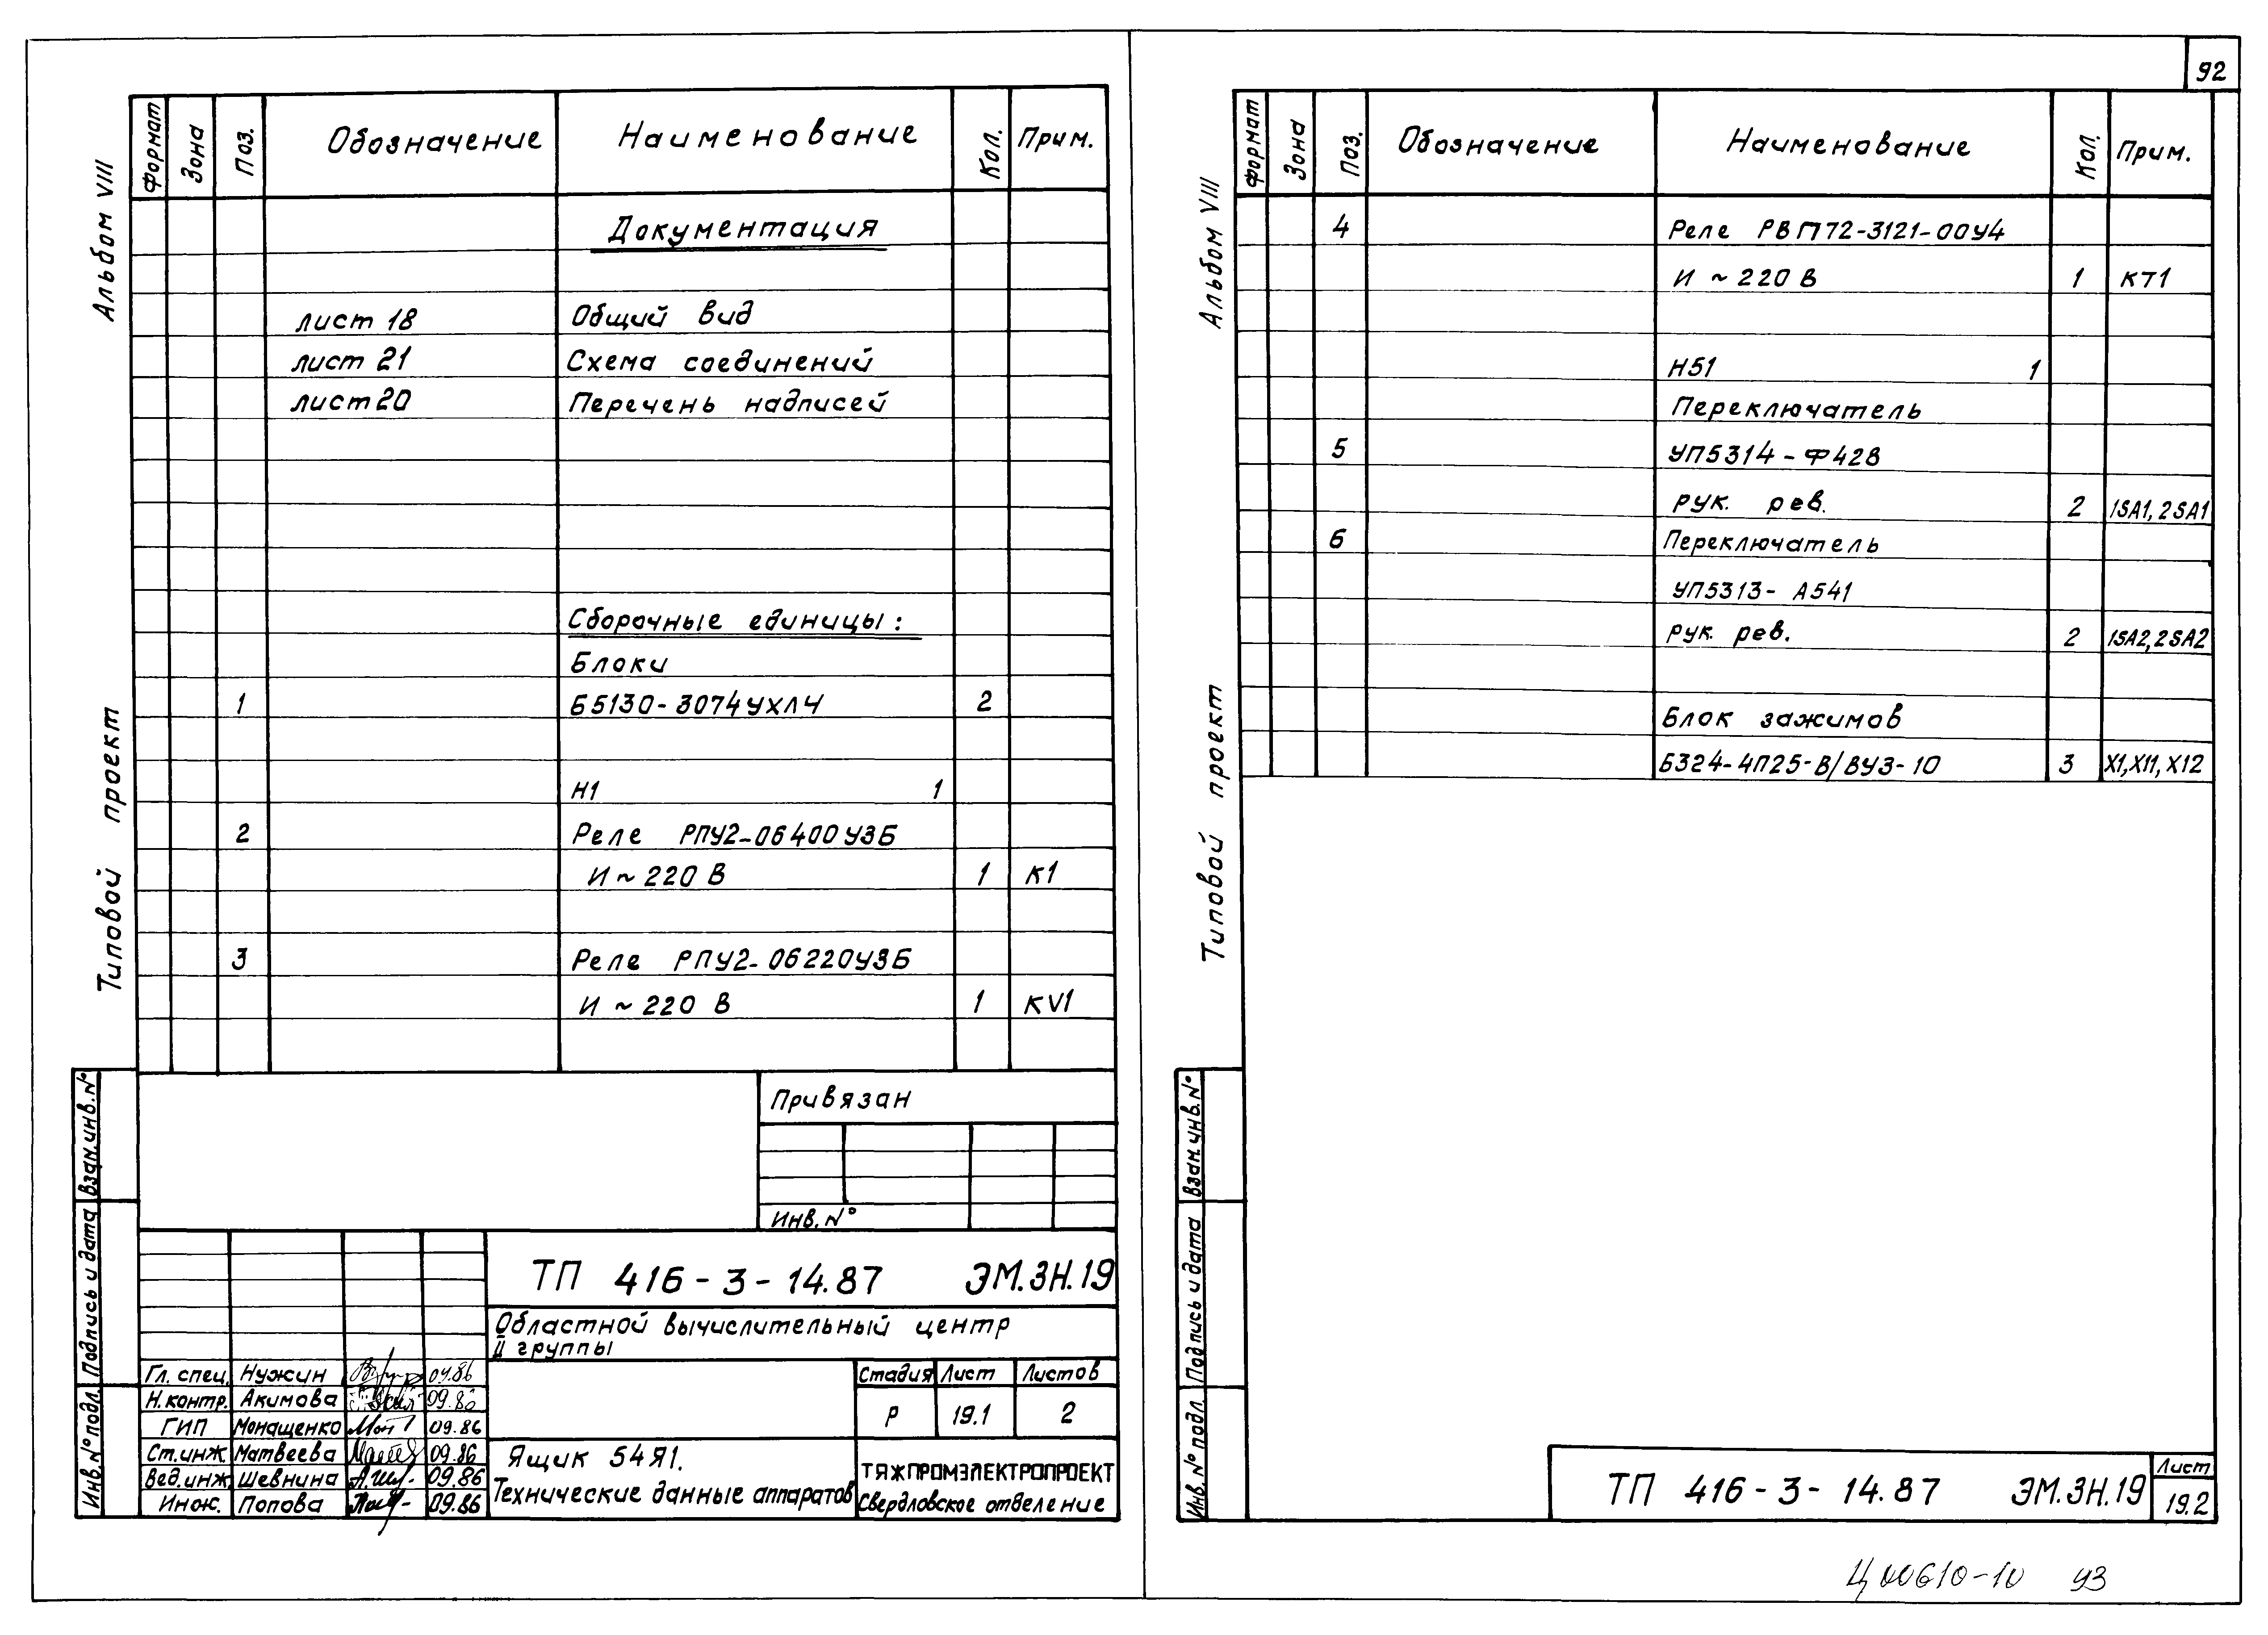 Альбом VIII
Типовой проект
Формат Зона Поз. Обозначение Наименование Кол. Прим.
Документация
лист 18 Общий вид
лист 21 Схема соединений
лист 20 Перечень надписей
Сборочные единицы:
Блоки
1 Б5130-3074УХЛЧ 2
Н1 1
2 Реле РПУ2-06400У3Б
И ~ 220 В 1 К1
3 Реле РПУ2-06220У3Б
И ~ 220 В 1 KV1
Привязан
Инв. №
Взам.инв.№
Подпись и дата
Инв.№ подл.
ТП 416-3-14.87 ЭМ.ЗН.19
Областной вычислительный центр
II группы
Гл. спец. Нужин 09.86
Н.контр. Акимова 09.86
ГИП Монащенко 09.86
Ст.инж. Матвеева 09.86
Вед.инж. Шевнина 09.86
Инж. Попова 09.86
Стадия Лист Листов
Р 19.1 2
Ящик 54Я1.
Технические данные аппаратов
ТЯЖПРОМЭЛЕКТРОПРОЕКТ
Свердловское отделение
92
Альбом VIII
Типовой проект
Формат Зона Поз. Обозначение Наименование Кол. Прим.
4 Реле РВП72-3121-00У4
И ~ 220 В 1 КТ1
Н51 1
Переключатель
5 УП5314-Ф428
рук. рев. 2 1SA1, 2SA1
6 Переключатель
УП5313-А541
рук. рев. 2 1SA2, 2SA2
Блок зажимов
Б324-4П25-В/ВУ3-10 3 Х1, Х11, Х12
Взам.инв.№
Подпись и дата
Инв.№ подл.
ТП 416-3-14.87 ЭМ.ЗН.19
Лист
19.2
Ц00610-10 93